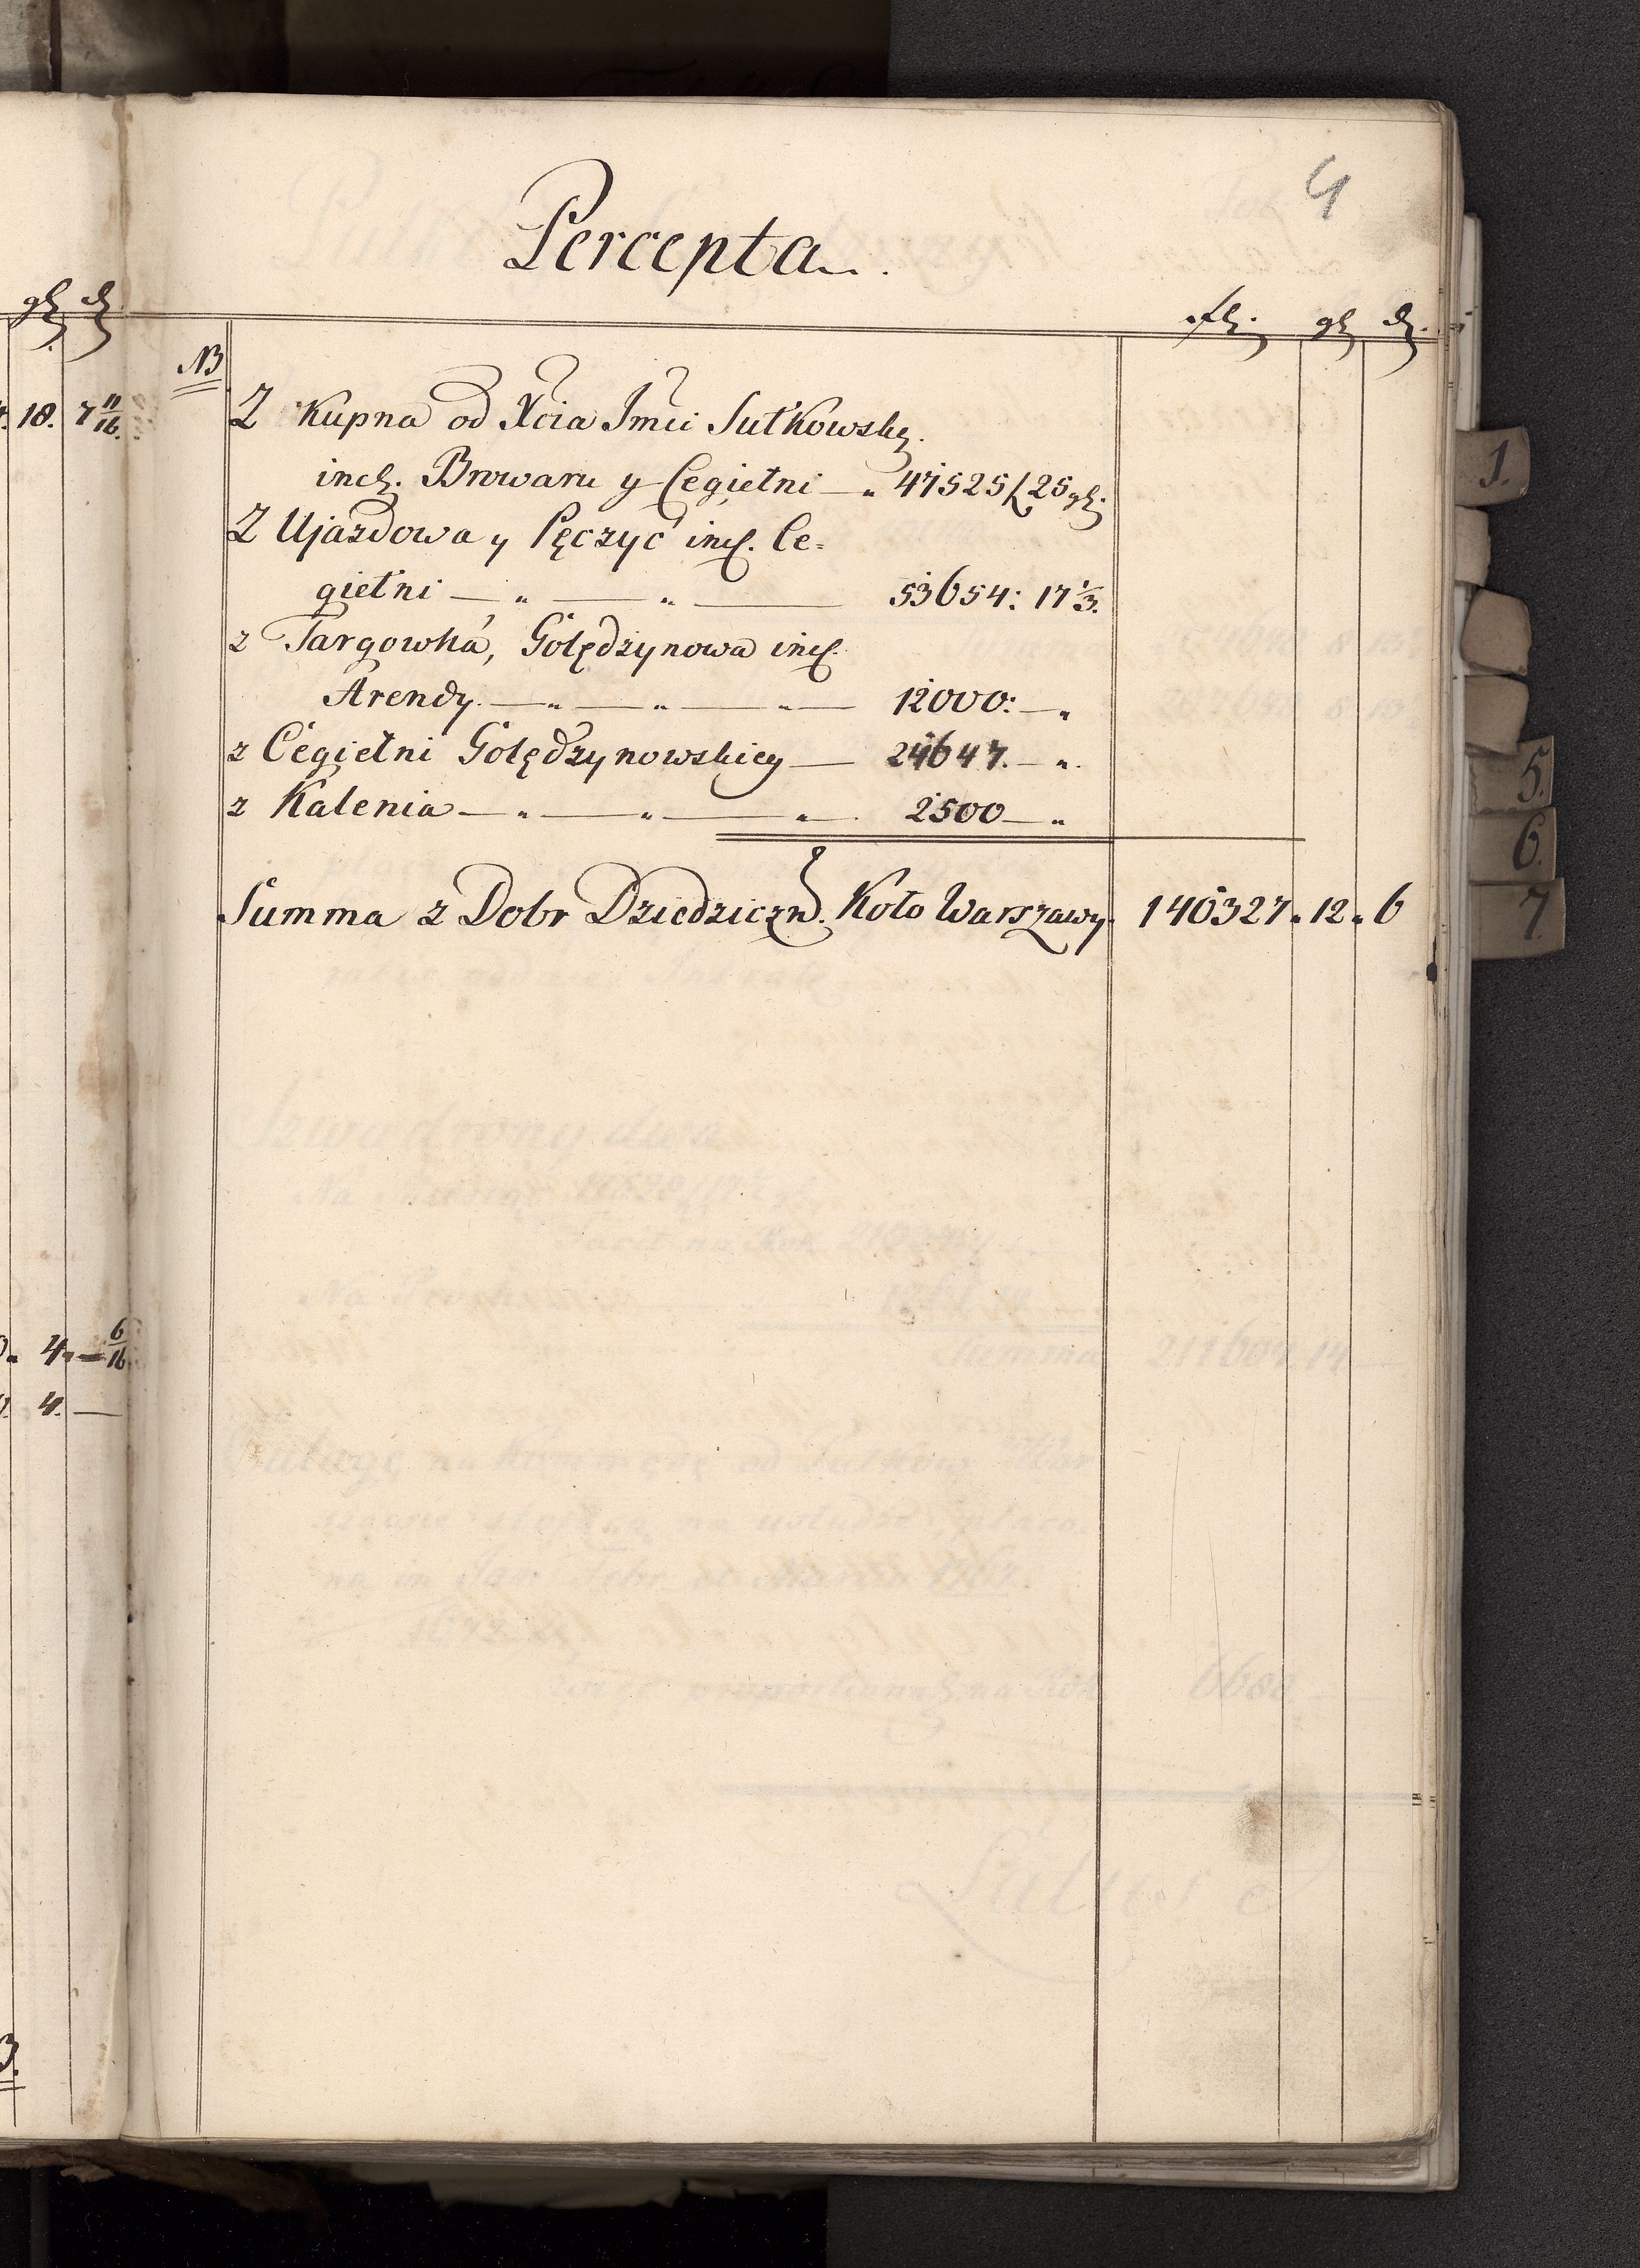 4
Percepta.
gl. d.
fl. gl. d.
NB
18. 7 11/16.
Z Kupna od Xcia Jmci Sułkowsky.
incl. Browaru y Cegielni — „ 47525 f. 25 gl.
Z Ujazdowa y Pęczyc incl. Ce=
gielni — „ — „ — 53654: 17 1/3.
z Targowka, Golędzynowa incl.
Arendy. — „ — „ — „ — 12000: — „
z Cegielni Golędzynowskiey — 24647. — „.
z Kalenia — „ — „ — „. 2500 — „
Summa z Dobr Dziedziczn. Koło Warszawy. 140327. 12. 6
4. — 6/16.
4. —
1.
5.
6.
7.